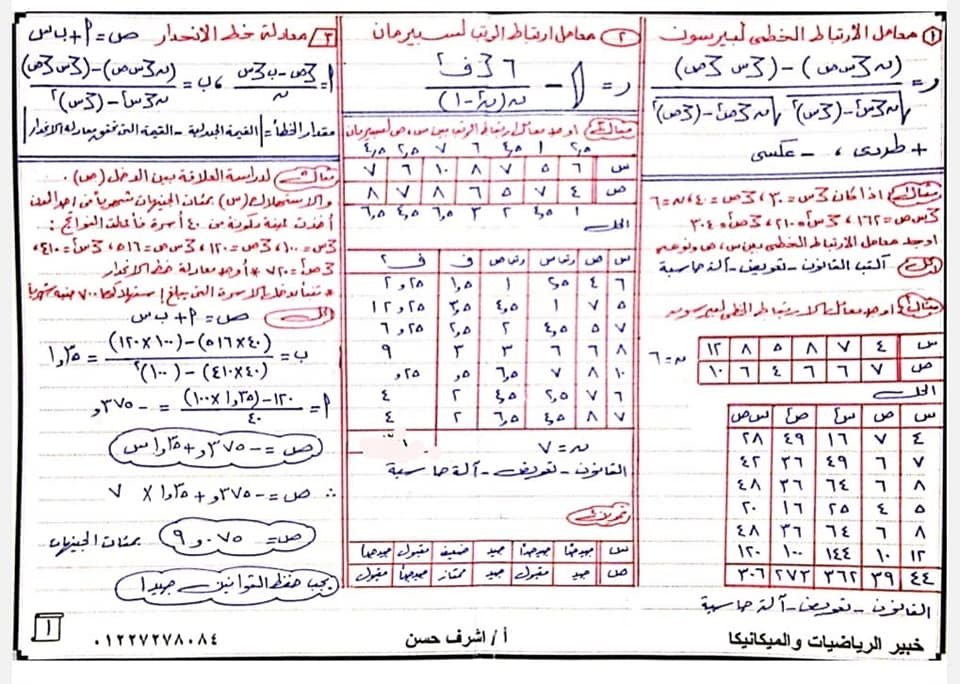 ① معامل الارتباط الخطى لبيرسون
ر = (ن 3 س ص) - (3 س 3 ص) / √ن 3 س² - (3 س)² √ن 3 ص² - (3 ص)²
+ طردى ، - عكسى
مثال ① اذا كان 3 س = ٣٠ ، 3 ص = ٤٠ ، ن = ٦
3 س ص = ١٦٢ ، 3 س² = ٢١٠ ، 3 ص² = ٣٠٤
اوجد معامل الارتباط الخطى بين س ، ص ونوعه
الحل أكتب القانون - تعويض - آلة حاسبة
مثال اوجد معامل الارتباط الخطى لبيرسون
س ٤ ٧ ٨ ٥ ٨ ١٢
ص ٧ ٦ ٦ ٤ ٦ ١٠
ن = ٦
الحل
س ص س² ص² س ص
٤ ٧ ١٦ ٤٩ ٢٨
٧ ٦ ٤٩ ٣٦ ٤٢
٨ ٦ ٦٤ ٣٦ ٤٨
٥ ٤ ٢٥ ١٦ ٢٠
٨ ٦ ٦٤ ٣٦ ٤٨
١٢ ١٠ ١٤٤ ١٠٠ ١٢٠
٤٤ ٣٩ ٣٦٢ ٢٧٣ ٣٠٦
القانون - تعويض - آلة حاسبة
② معامل ارتباط الرتب لسبيرمان
ر = ١ - ٦ 3 ف² / ن (ن² - ١)
مثال اوجد معامل ارتباط الرتب بين س ، ص لسبيرمان
٢,٥ ١ ٤,٥ ٦ ٧ ٢,٥ ٤,٥
س ٦ ٥ ٧ ٨ ١٠ ٦ ٧
ص ٤ ٧ ٥ ٦ ٨ ٧ ٨
١ ٤,٥ ٢ ٣ ٦,٥ ٤,٥ ٦,٥
الحل
س ص رتب س رتب ص ف ف²
٦ ٤ ٢,٥ ١ ١,٥ ٢,٢٥
٥ ٧ ١ ٤,٥ ٣,٥ ١٢,٢٥
٧ ٥ ٤,٥ ٢ ٢,٥ ٦,٢٥
٨ ٦ ٦ ٣ ٣ ٩
١٠ ٨ ٧ ٦,٥ ,٥ ,٢٥
٦ ٧ ٢,٥ ٤,٥ ٢ ٤
٧ ٨ ٤,٥ ٦,٥ ٢ ٤
ن = ٧
القانون - تعويض - آلة حاسبة
تمرين
س جيد جدًا جيد جدًا جيد ضعيف مقبول جيد جدًا
ص جيد مقبول جيد ممتاز جيد جدًا مقبول
٣ معادلة خط الانحدار ص = أ + ب س
أ = 3 ص - ب 3 س / ن ، ب = (ن 3 س ص) - (3 س 3 ص) / ن 3 س² - (3 س)²
مقدار الخطأ = | القيمة الجدولية - القيمة التى تحقق معادلة الانحدار |
مثال لدراسة العلاقة بين الدخل (ص)
والاستهلاك (س) بمئات الجنيهات شهريا من احد المدن
أخذت عينة مكونة من ٤٠ أسرة فأعطت النتائج :
3 س = ١٠٠ ، 3 ص = ١٢٠ ، 3 س ص = ٥١٦ ، 3 س² = ٤١٠ ،
3 ص² = ٧٢٠ * أوجد معادلة خط الانحدار
* تنبأ بدخل الاسرة التى يبلغ استهلاكها ٧٠٠ جنيه شهريا
الحل ص = أ + ب س
ب = (٤٠×٥١٦) - (١٠٠×١٢٠) / (٤٠×٤١٠) - (١٠٠)² = ١,٣٥
أ = ١٢٠ - (١,٣٥×١٠٠) / ٤٠ = - ,٣٧٥
ص = - ,٣٧٥ + ١,٣٥ س
∴ ص = - ,٣٧٥ + ١,٣٥ × ٧
ص = ٩,٠٧٥ بمئات الجنيهات
يجب حفظ القوانين جيدا
خبير الرياضيات والميكانيكا
أ / اشرف حسن
٠١٢٢٧٢٧٨٠٨٤
١